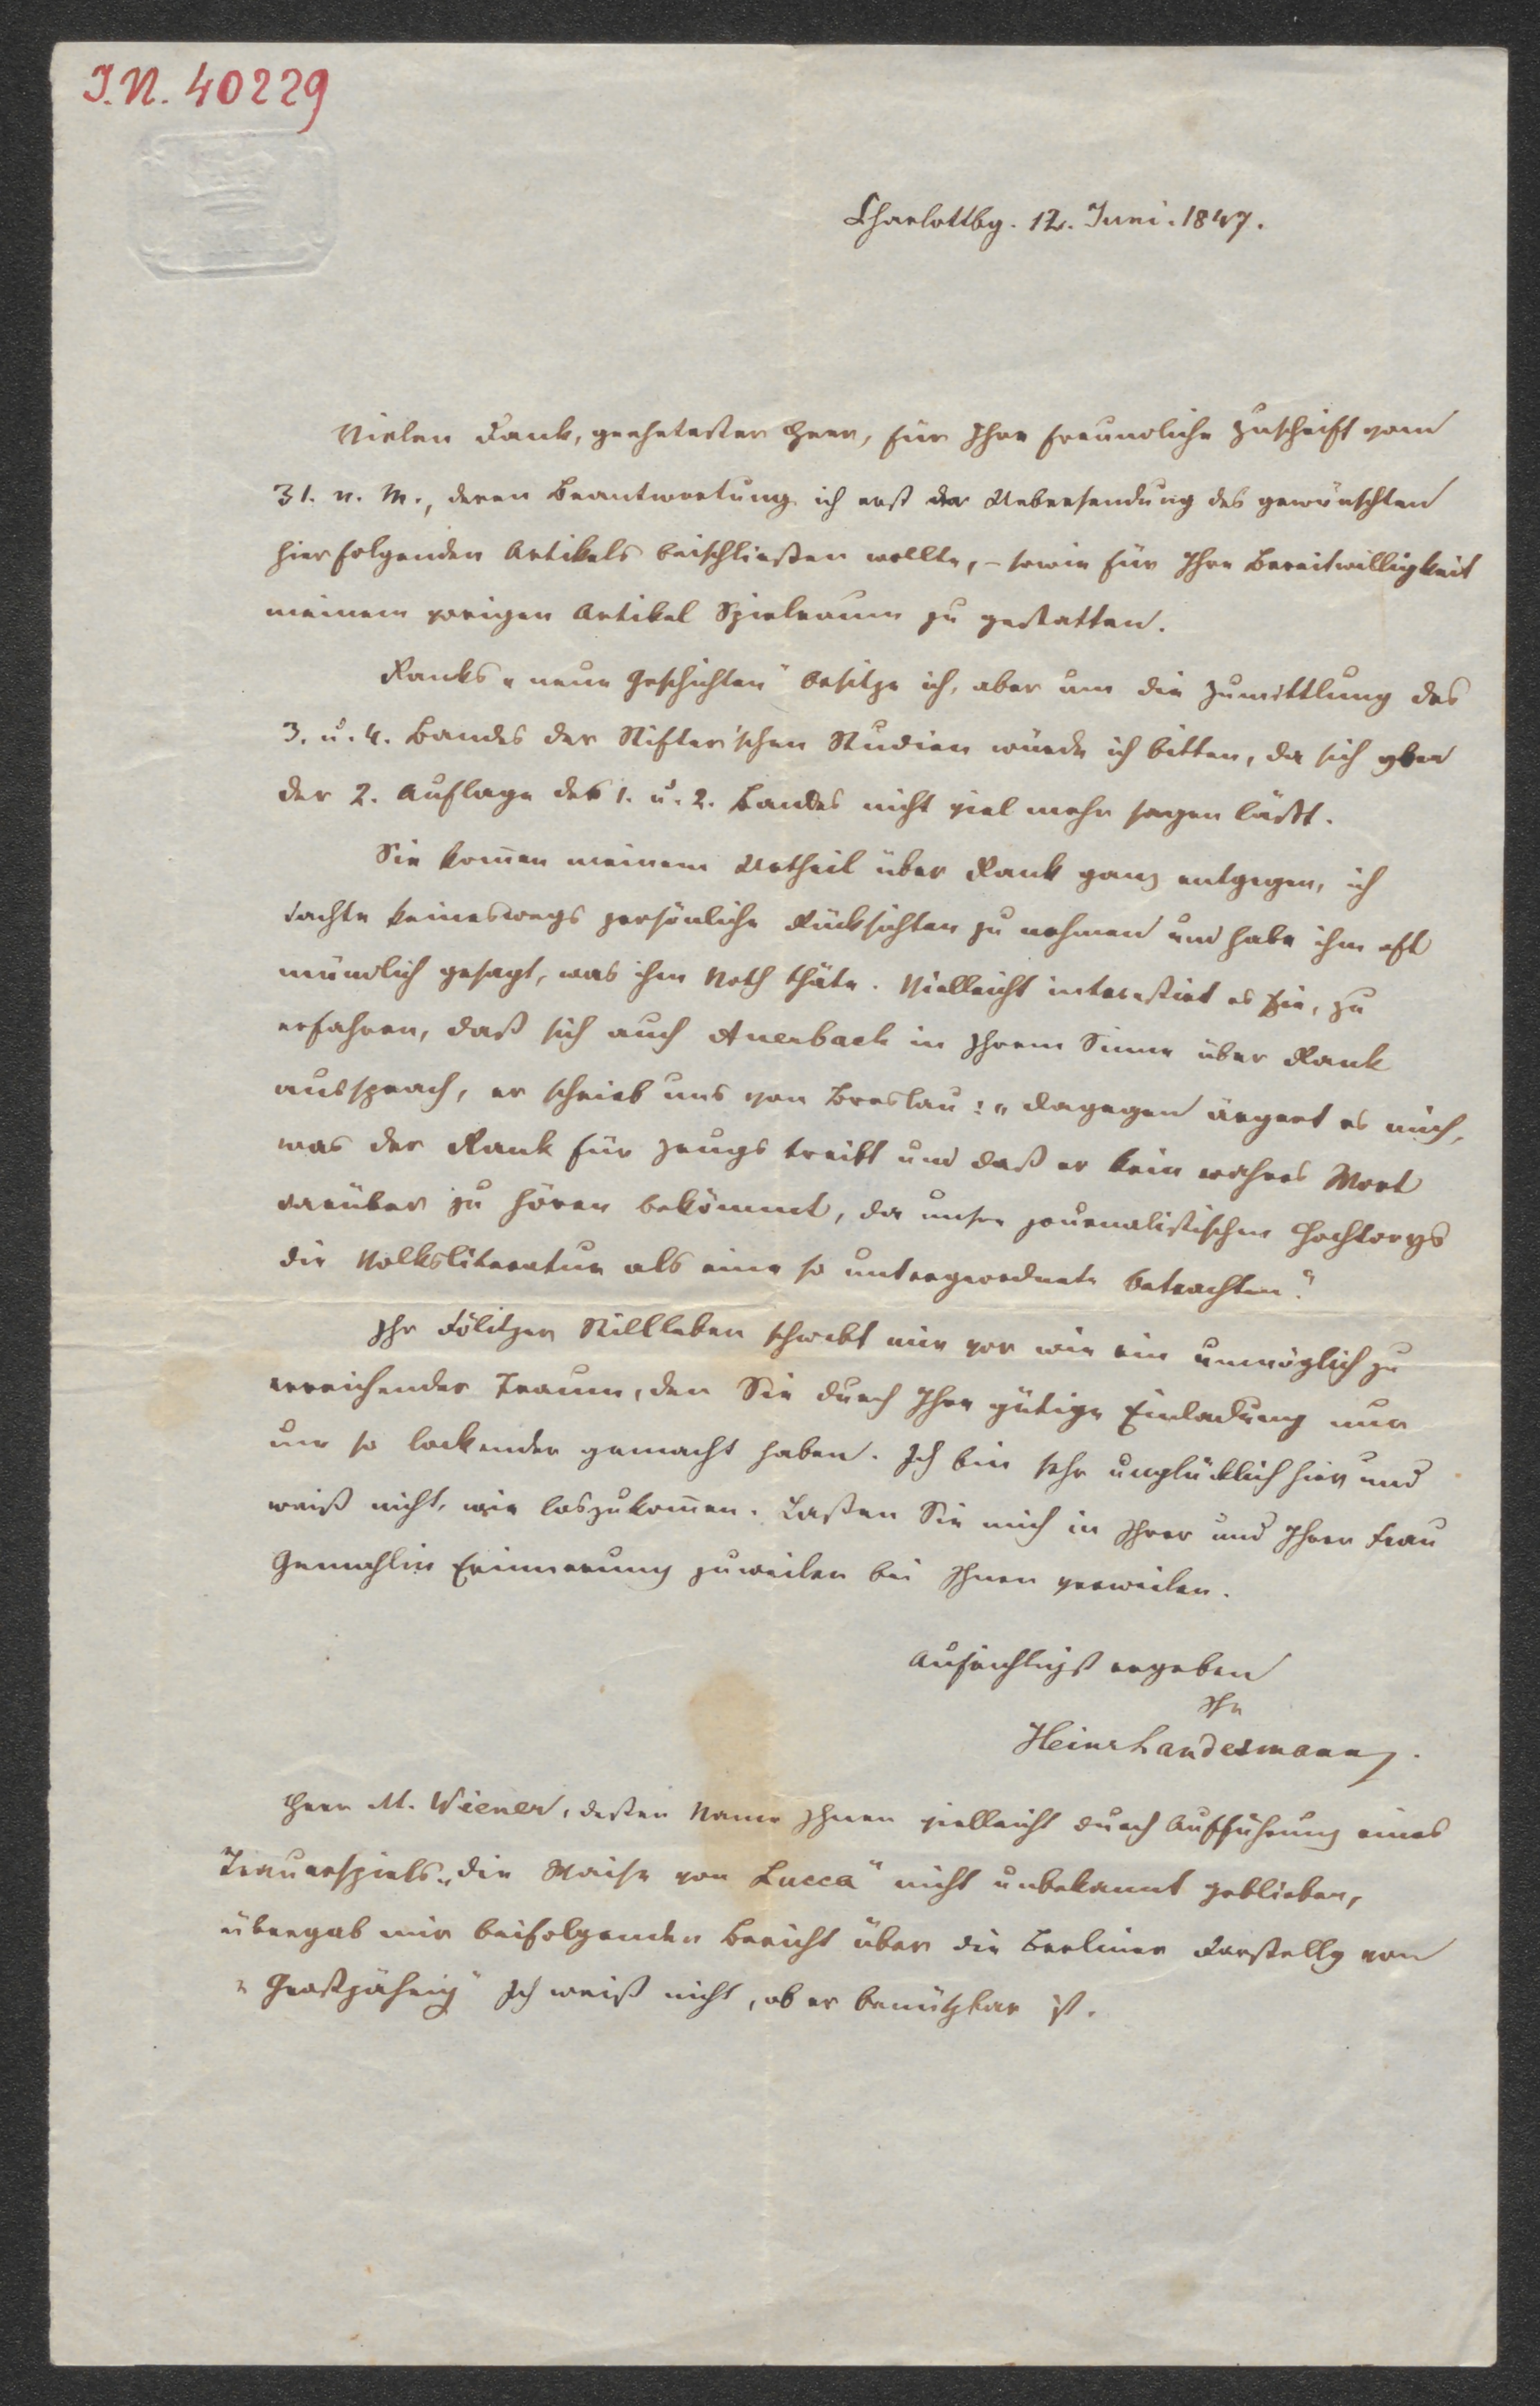 I.N. 40229
Charlottbg. 12. Juni. 1847.
Vielen Dank, geehrtester Herr, für Ihre freundliche Zuschrift vom
31. v. M., deren Beantwortung ich erst der Uebersendung des gewünschten
hier folgenden Artikels beischließen wollte, – sowie für Ihre Bereitwilligkeit
meinem vorigen Artikel Spielraum zu gestatten.
Ranks „neue Geschichten" besitze ich, aber um die Zumittlung des
3. u. 4. Bandes der Stifter'schen Studien würde ich bitten, da sich über
der 2. Auflage des 1. u. 2. Bandes nicht viel mehr sagen läßt.
Sie kom̄en meinem Urtheil über Rank ganz entgegen, ich
dachte keineswegs persönliche Rücksichten zu nehmen und habe ihm oft
mündlich gesagt, was ihm Noth thäte. Vielleicht interessirt es Sie, zu
erfahren, daß sich auch Auerbach in Ihrem Sinne über Rank
aussprach, er schrieb uns von Breslau: „Dagegen ärgert es mich,
was der Rank für Zeugs treibt und daß er kein wahres Wort
darüber zu hören bekömmt, da unsre journalistischen Hochtorys
die Volksliteratur als eine so untergeordnete betrachten."
Ihr Fölitzer Stillleben schwebt mir vor wie ein unmöglich zu
erreichender Traum, den Sie durch Ihre gütige Einladung nur
um so lockender gemacht haben. Ich bin sehr unglücklich hier und
weiß nicht, wie loszukom̄en. Laßen Sie mich in Ihrer und Ihrer Frau
Gemahlin Erinnerung zuweilen bei Ihnen verweilen.
Aufrichtigst ergeben
Ihr
Heinr Landesmann.
Herr M. Wiener, deßen Name Ihnen vielleicht durch Aufführung eines
Trauerspiels „die Waise von Lucca" nicht unbekannt geblieben,
übergab mir beifolgenden Bericht über die Berliner Darstellg von
„Großjährig" Ich weiß nicht, ob er benützbar ist.